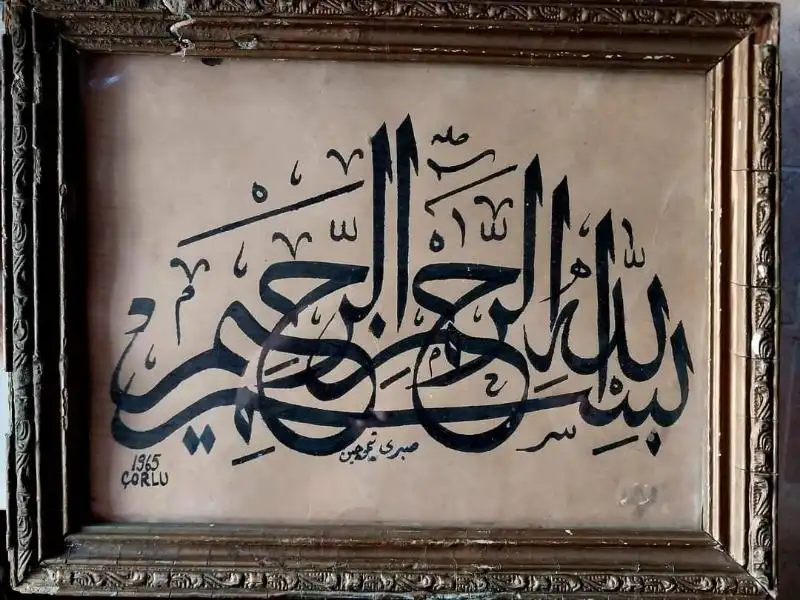 بسم الله الرحمن الرحيم
صبرى
1965
ÇORLU